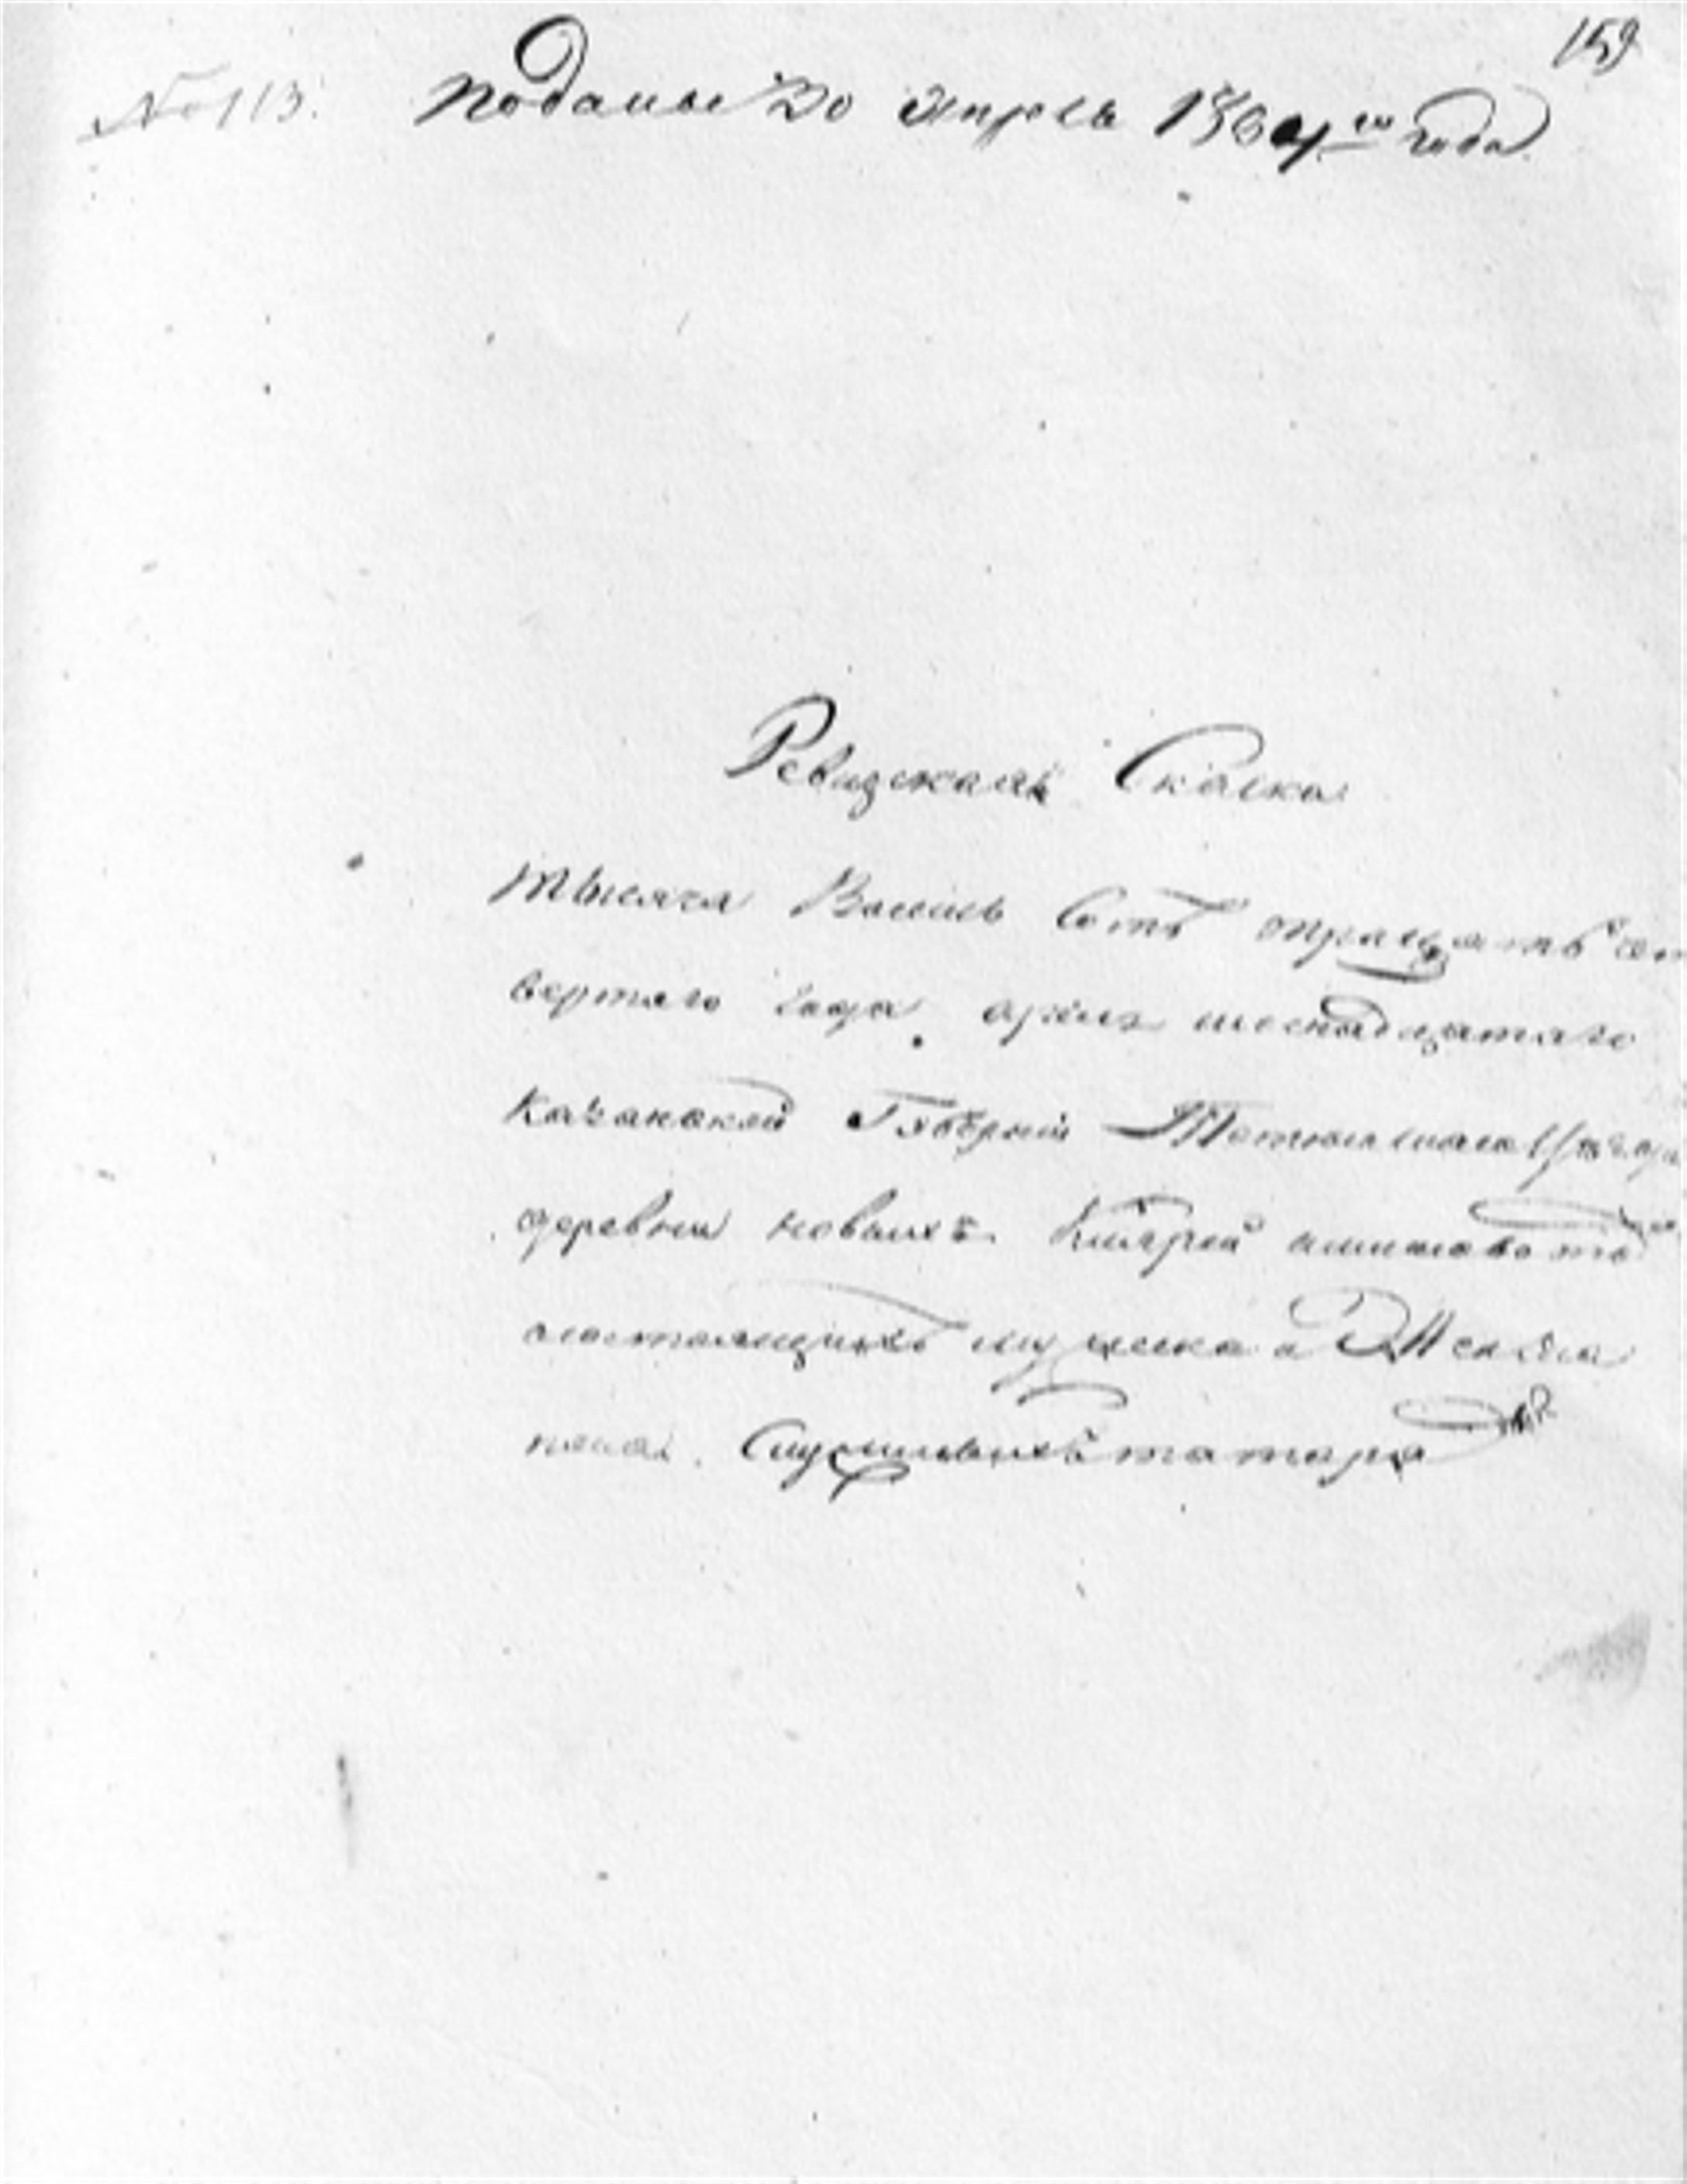 159
№ 113. Подано 30 апреля 1834го года
Ревизская Скаска
тысяча Восемь Сотъ трицать чет
вертаго года апреля шеснадцатаго
Казанской Губернии Тетюшскаго
деревни новыхъ
состоящихъ мужска и Женска
пола. Служилыхъ татаръ